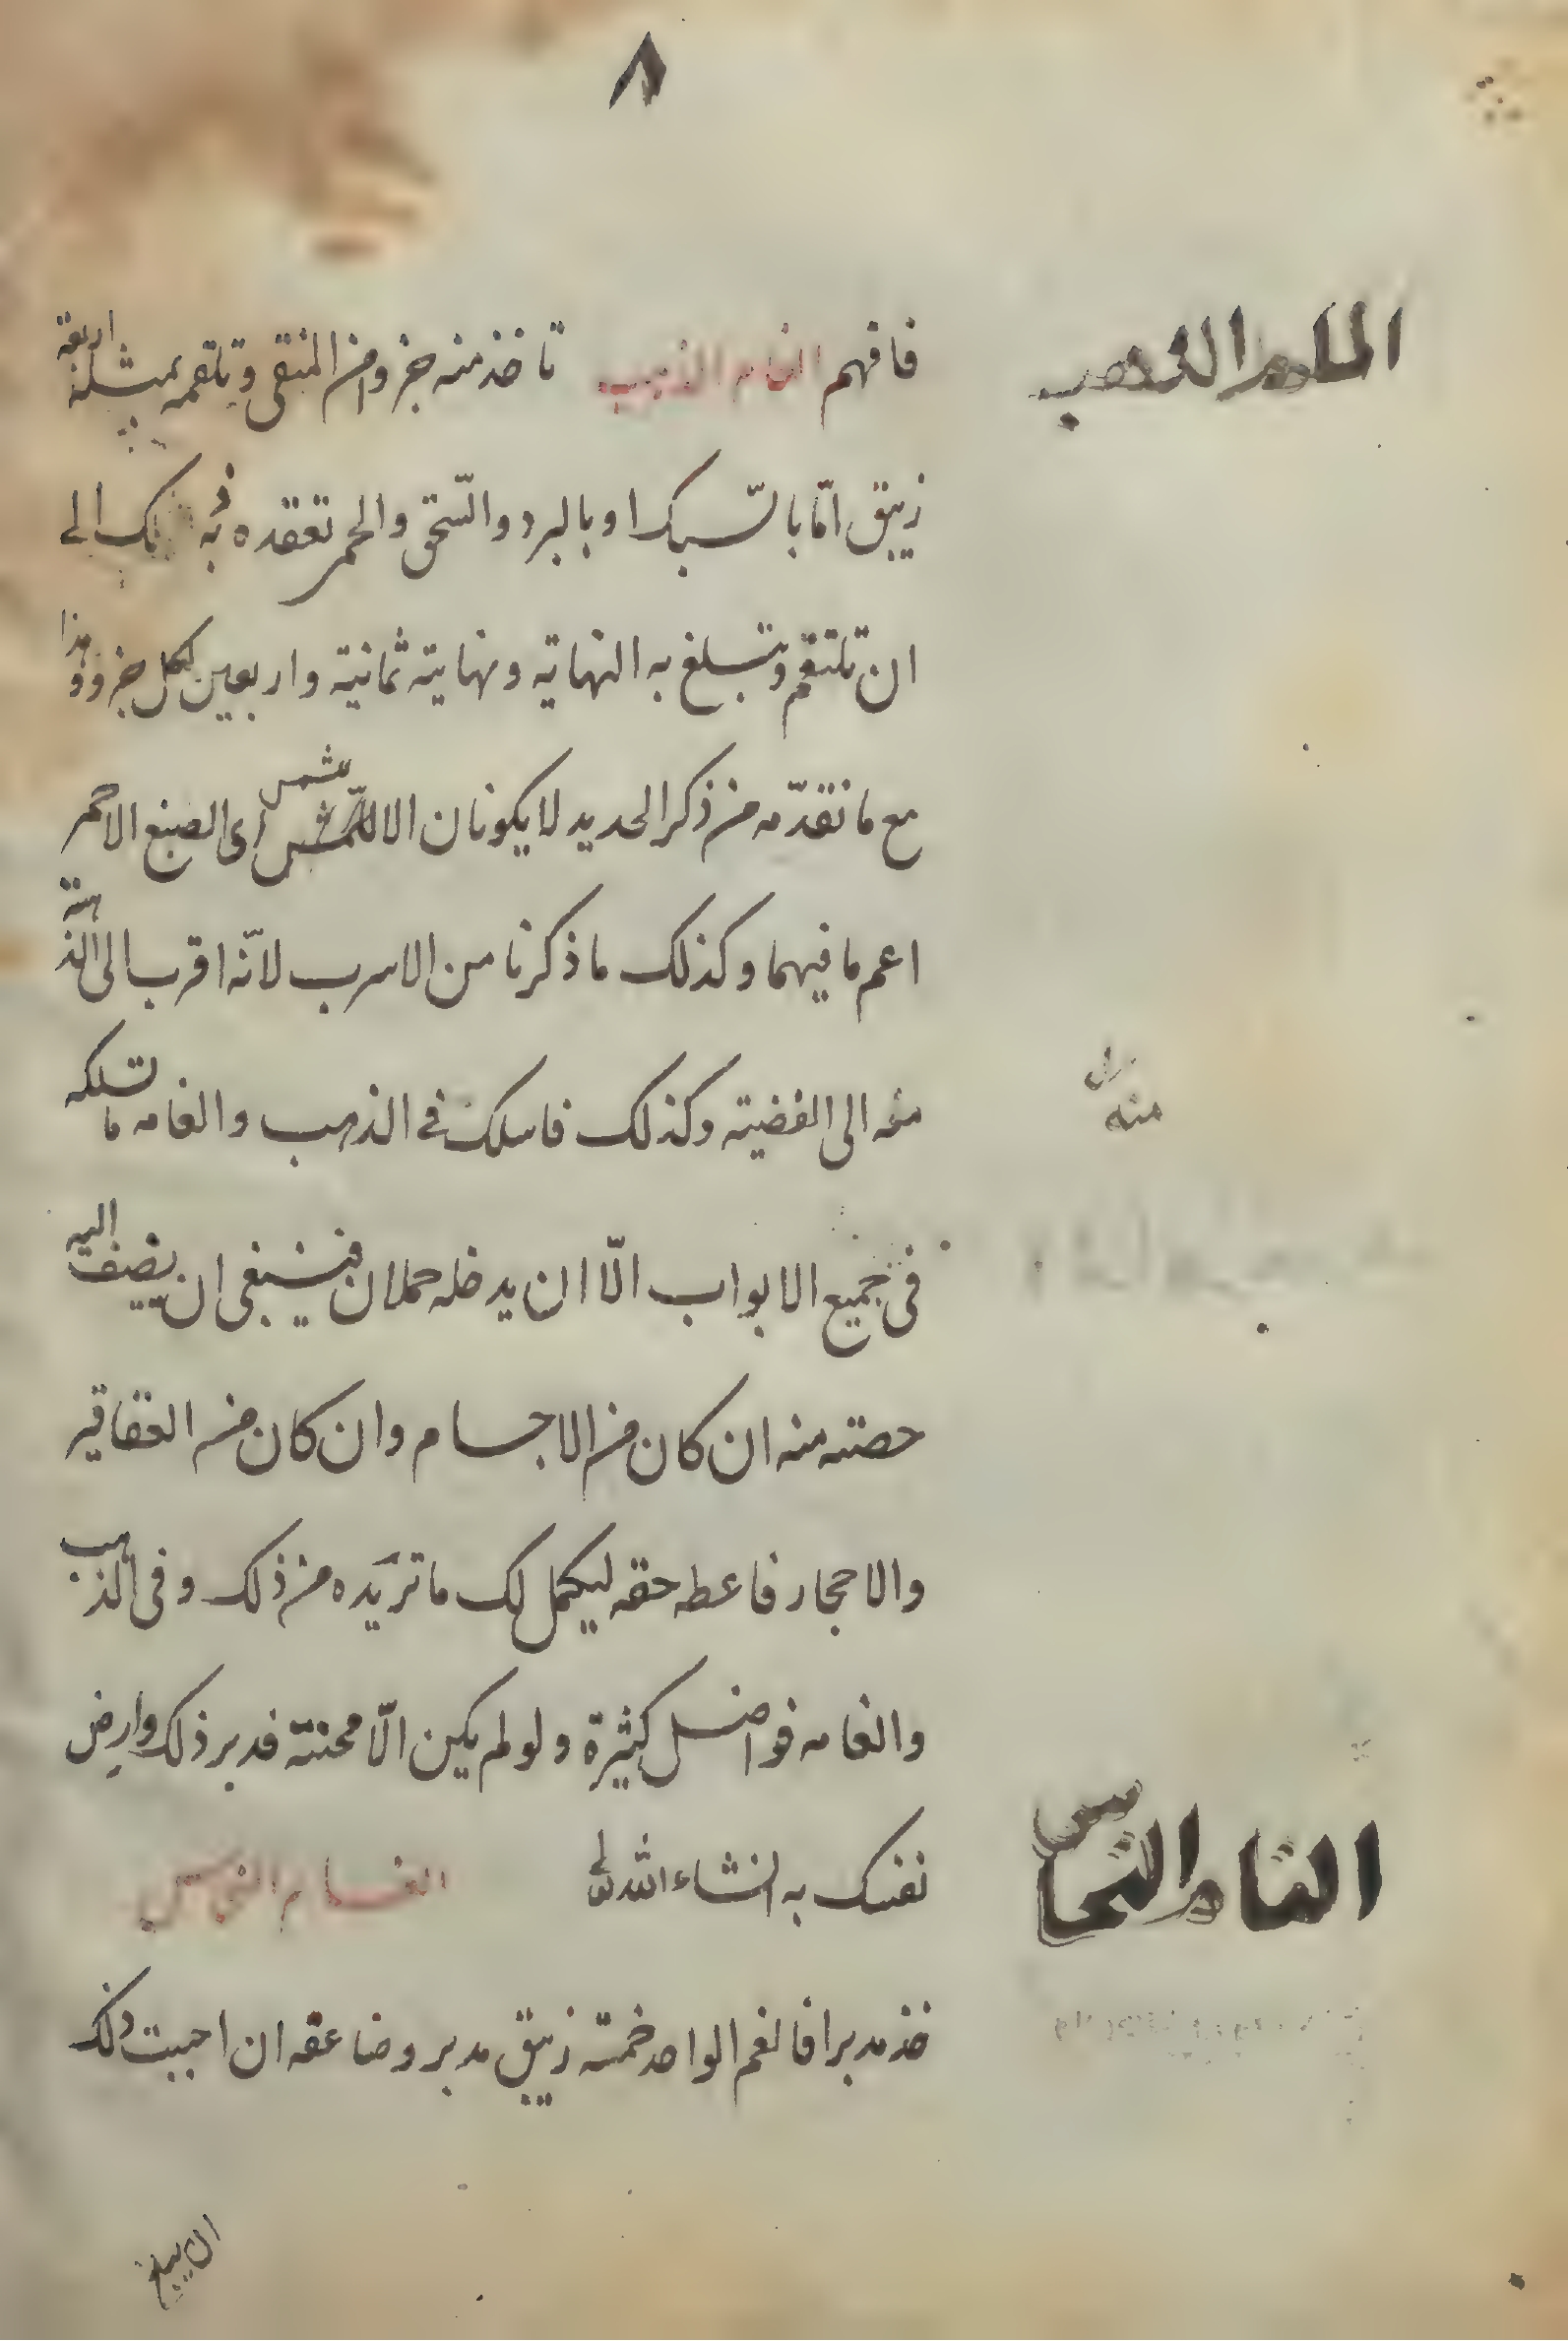 ٨
فافهم الغام الذهب تاخذ منه جزوا من المنقى وتلقمه بمثله اربعة
زيبق امّا بالسّبك او بالبرد والسّحق والحمر تعقده به الى
ان تلتقم وتبلغ به النهاية ونهايته ثمانية واربعين لكل جزو وهذا
مع ما تقدّمه من ذكر الحديد لا يكونان الا للشمس اى الصبغ الاحمر
اعم ما فيهما وكذلك ما ذكرنا من الاسرب لانّه اقرب الى الذهبية
منه الى الفضية وكذلك فاسلك فى الذهب والغامه ما تسلكه
فى جميع الابواب الّا ان يدخله حملان فينبغى ان يضيف اليه
حصته منه ان كان من الاجسام وان كان من العقاقير
والاحجار فاعطه حقه ليكمل لك ما تريده من ذلك وفى الذهب
والغامه فواضل كثيرة ولو لم يكن الّا محنته فدبر ذلك وارض
نفسك به انشاء الله تعالى الغام النحاس
خذ مدبرا فالغم الواحد خمسة زيبق مدبر وضاعفه ان احببت ذلك
منه
الغام النحاس
ان يبلغ